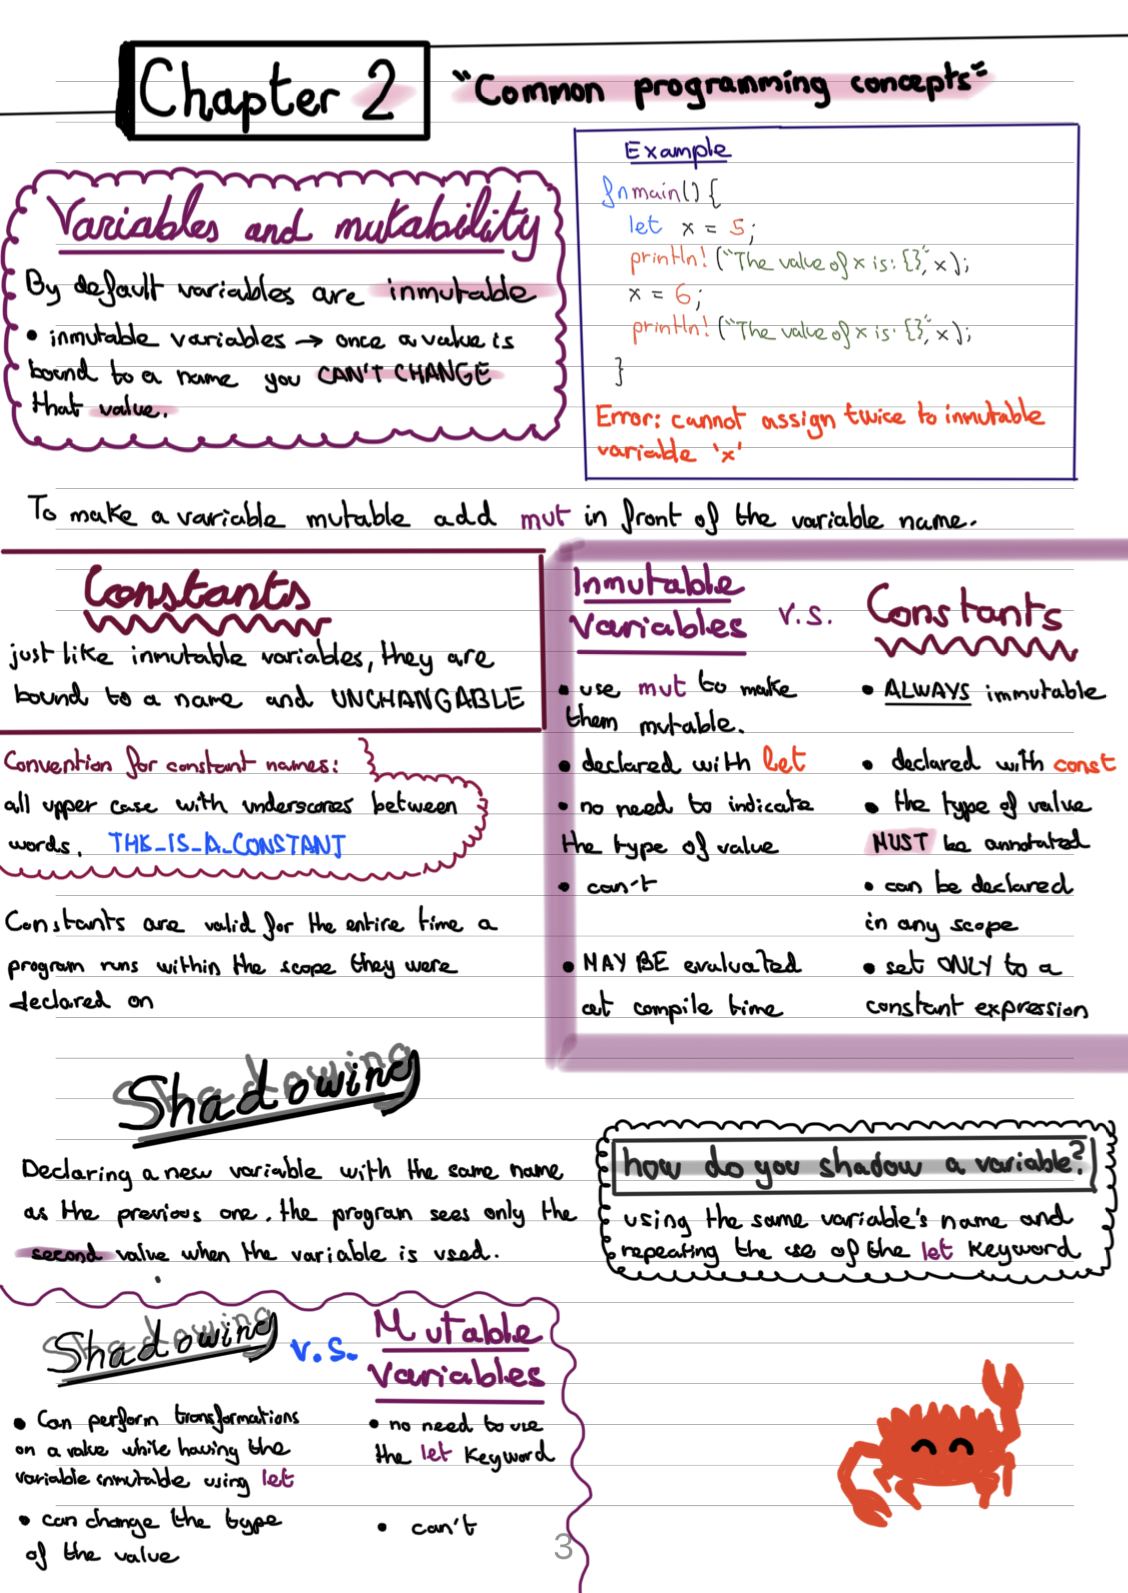 Chapter 2
"Common programming concepts"
Variables and mutability
By default variables are inmutable
• inmutable variables → once a value is
bound to a name you CAN'T CHANGE
that value.
Example
fn main() {
let x = 5;
println! ("The value of x is: {}", x);
x = 6;
println! ("The value of x is: {}", x);
}
Error: cannot assign twice to inmutable
variable 'x'
To make a variable mutable add mut in front of the variable name.
Constants
just like inmutable variables, they are
bound to a name and UNCHANGABLE
Convention for constant names:
all upper case with underscores between
words. THIS_IS_A_CONSTANT
Constants are valid for the entire time a
program runs within the scope they were
declared on
Inmutable
Variables
v.s.
Constants
• use mut to make
them mutable.
• ALWAYS immutable
• declared with let
• declared with const
• no need to indicate
the type of value
• the type of value
MUST be annotated
• can't
• can be declared
in any scope
• MAY BE evaluated
at compile time
• set ONLY to a
constant expression
Shadowing
Declaring a new variable with the same name
as the previous one. the program sees only the
second value when the variable is used.
how do you shadow a variable?
using the same variable's name and
repeating the use of the let keyword
Shadowing
v.s.
Mutable
Variables
• Can perform transformations
on a value while having the
variable inmutable using let
• no need to use
the let keyword
• can change the type
of the value
• can't
3